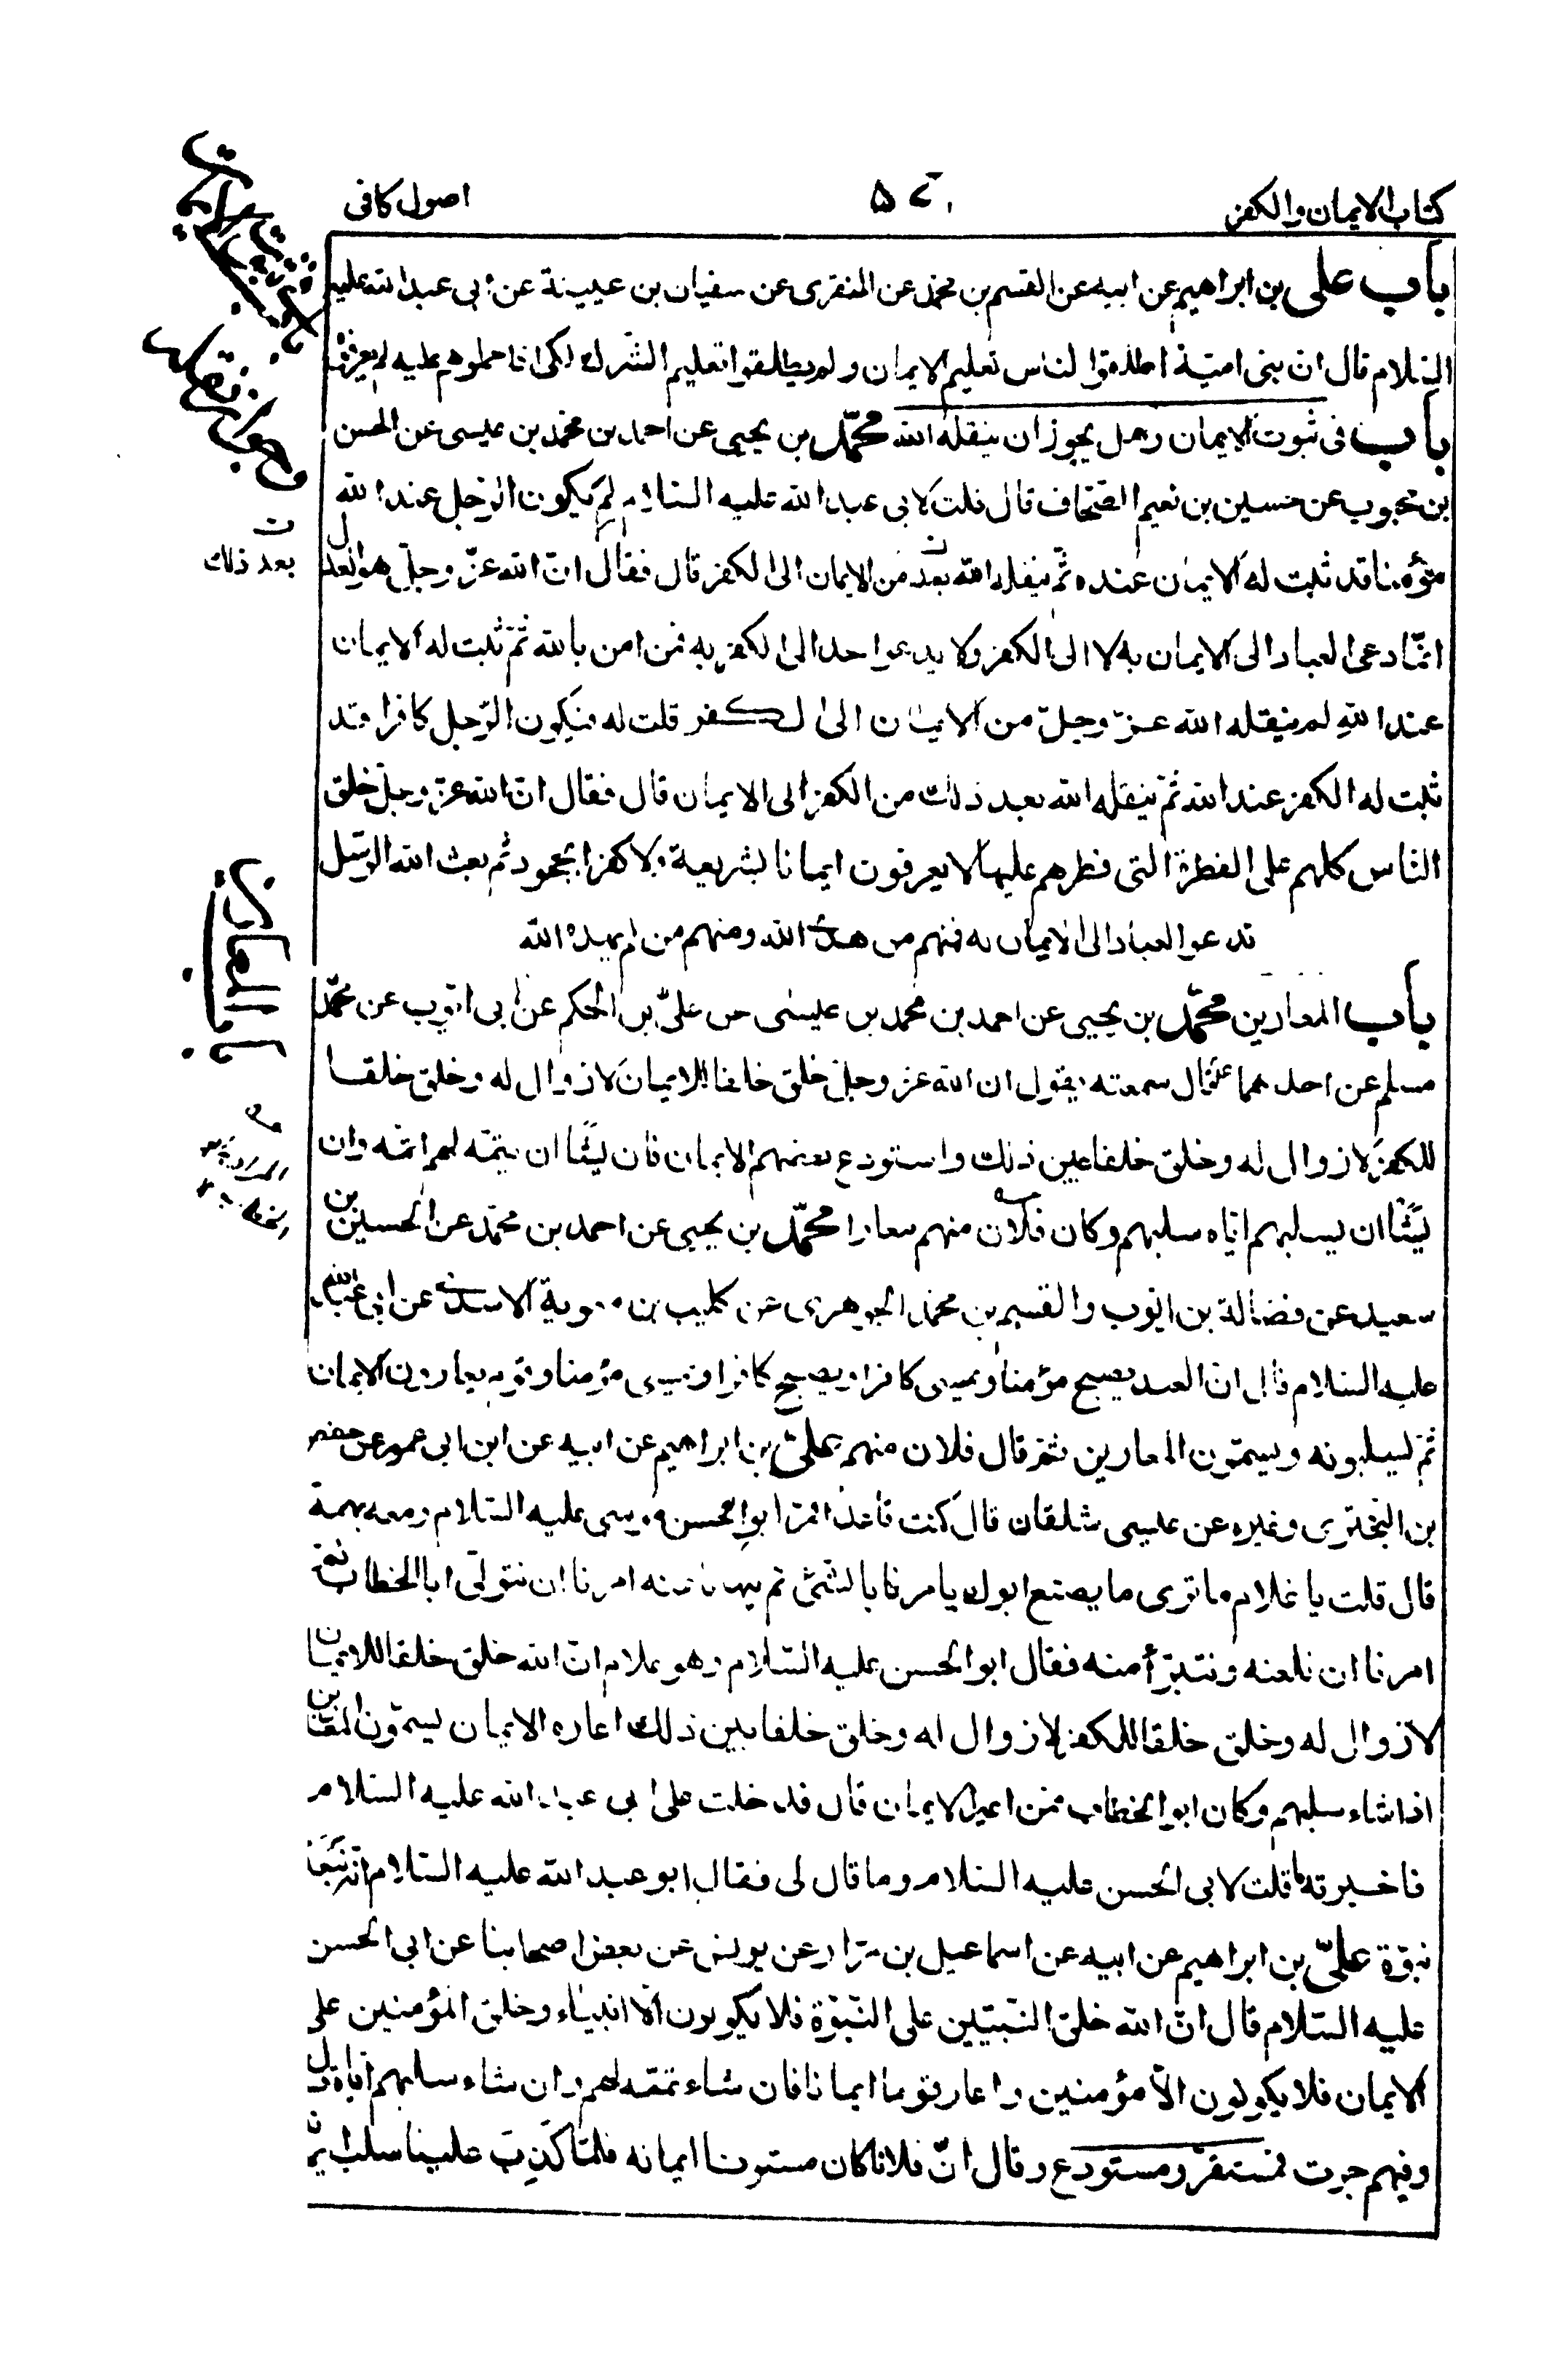 كتاب الايمان والكفر
اصول كافى
باب على بن ابراهيم عن ابيه عن القسم بن محمد عن المنقرى عن سفيان بن عيينة عن ابى عبد الله عليه
السلام قال ان بنى امية اطلقوا لناس تعليم الايمان ولم يطلقوا تعليم الشرك لكى اذا حملوهم عليه لم يعرفوه
باب فى ثبوت الايمان وهل يجوز ان ينقله الله محمّد بن يحيى عن احمد بن محمد بن عيسى عن الحسن
بن محبوب عن حسين بن نعيم الصّحّاف قال قلت لابى عبد الله عليه السلام لم يكون الرّجل عند الله
مؤمنا قد ثبت له الايمان عنده ثمّ ينقله الله بعد من الايمان الى الكفر قال فقال انّ الله عزّ وجلّ هو العدل
انّما دعى العباد الى الايمان به لا الى الكفر ولا يدعوا احدا الى الكفر به فمن امن بالله ثمّ ثبت له الايمان
عند الله لم ينقله الله عزّ وجلّ من الايمان الى الكفر قلت له فيكون الرّجل كافرا وقد
ثبت له الكفر عند الله ثمّ ينقله الله بعد ذلك من الكفر الى الايمان قال فقال انّ الله عزّ وجلّ خلق
النّاس كلهم على الفطرة التى فطرهم عليها لا يعرفون ايمانا بشريعة ولا كفرا بجحود ثم بعث الله الرسل
تدعوا العباد الى الايمان به فمنهم من هدى الله ومنهم من لم يهده الله
باب المعارين محمّد بن يحيى عن احمد بن محمد بن عيسى عن علىّ بن الحكم عن ابى ايّوب عن محمّد
مسلم عن احدهما ع قال سمعته يقول ان الله عز وجل خلق خلقا للايمان لا زوال له وخلق خلقا
للكفر لا زوال له وخلق خلقا بين ذلك واستودع بعضهم الايمان فان يشا ان يتمّه لهم اتمّه وان
يشا ان يسلبهم ايّاه سلبهم وكان فلان منهم معارا محمّد بن يحيى عن احمد بن محمّد عن الحسين بن
سعيد عن فضالة بن ايوب والقسم بن محمد الجوهرى عن كليب بن معوية الاسدى عن ابى عبد الله
عليه السلام قال ان العبد يصبح مؤمنا ويمسى كافرا ويصبح كافرا ويمسى مؤمنا وقوم يعارون الايمان
ثمّ يسلبونه ويسمّون المعارين ثم قال فلان منهم علىّ بن ابراهيم عن ابيه عن ابن ابى عمير عن حفص
بن البخترى وغيره عن عيسى شلقان قال كنت قاعدا فمرّ ابو الحسن موسى عليه السلام ومعه بهمة
قال قلت يا غلام ما ترى ما يصنع ابوك يامرنا بالشّئ ثم ينهانا عنه امرنا ان نتولّى ابا الخطاب ثمّ
امرنا ان نلعنه ونتبرّأ منه فقال ابو الحسن عليه السّلام وهو غلام انّ الله خلق خلقا للايمان
لا زوال له وخلق خلقا للكفر لا زوال له وخلق خلقا بين ذلك اعاره الايمان يسمّون المعارين
اذا شاء سلبهم وكان ابو الخطاب ممّن اعير الايمان قال فدخلت على ابى عبد الله عليه السلام
فاخبرته ما قلت لابى الحسن عليه السلام وما قال لى فقال ابو عبد الله عليه السّلام انه نبعة
نبوّة علىّ بن ابراهيم عن ابيه عن اسماعيل بن مرّار عن يونس عن بعض اصحابنا عن ابى الحسن
عليه السّلام قال انّ الله خلق النّبيّين على النّبوّة فلا يكونون الا انبياء وخلق المؤمنين على
الايمان فلا يكونون الاّ مؤمنين واعار قوما ايمانا فان شاء تمّمه لهم وان شاء سلبهم ايّاه قال
وفيهم جرت فمستقرّ ومستودع وقال انّ فلانا كان مستودعا ايمانه فلمّا كذب علينا سلب ايمانه
بعد ذلك
باب المعارين